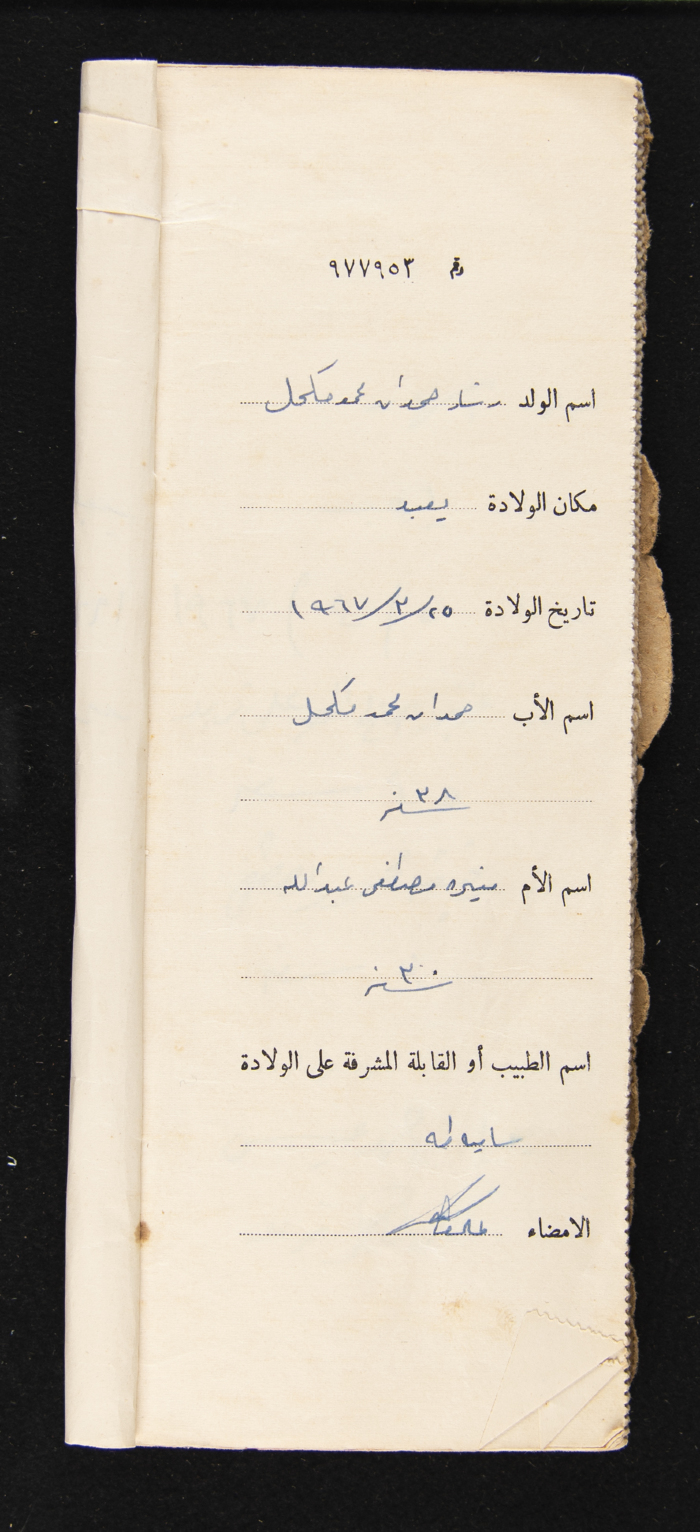 رقم ٩٧٧٩٥٣
اسم الولد رشاد حمدان محمد مكحل
مكان الولادة يعبد
تاريخ الولادة ٢٥/٣/١٩٦٧
اسم الأب حمدان محمد مكحل
٣٨ سنه
اسم الأم منيره مصطفى عبد الله
٣٠ سنه
اسم الطبيب أو القابلة المشرفة على الولادة
طه
الامضاء